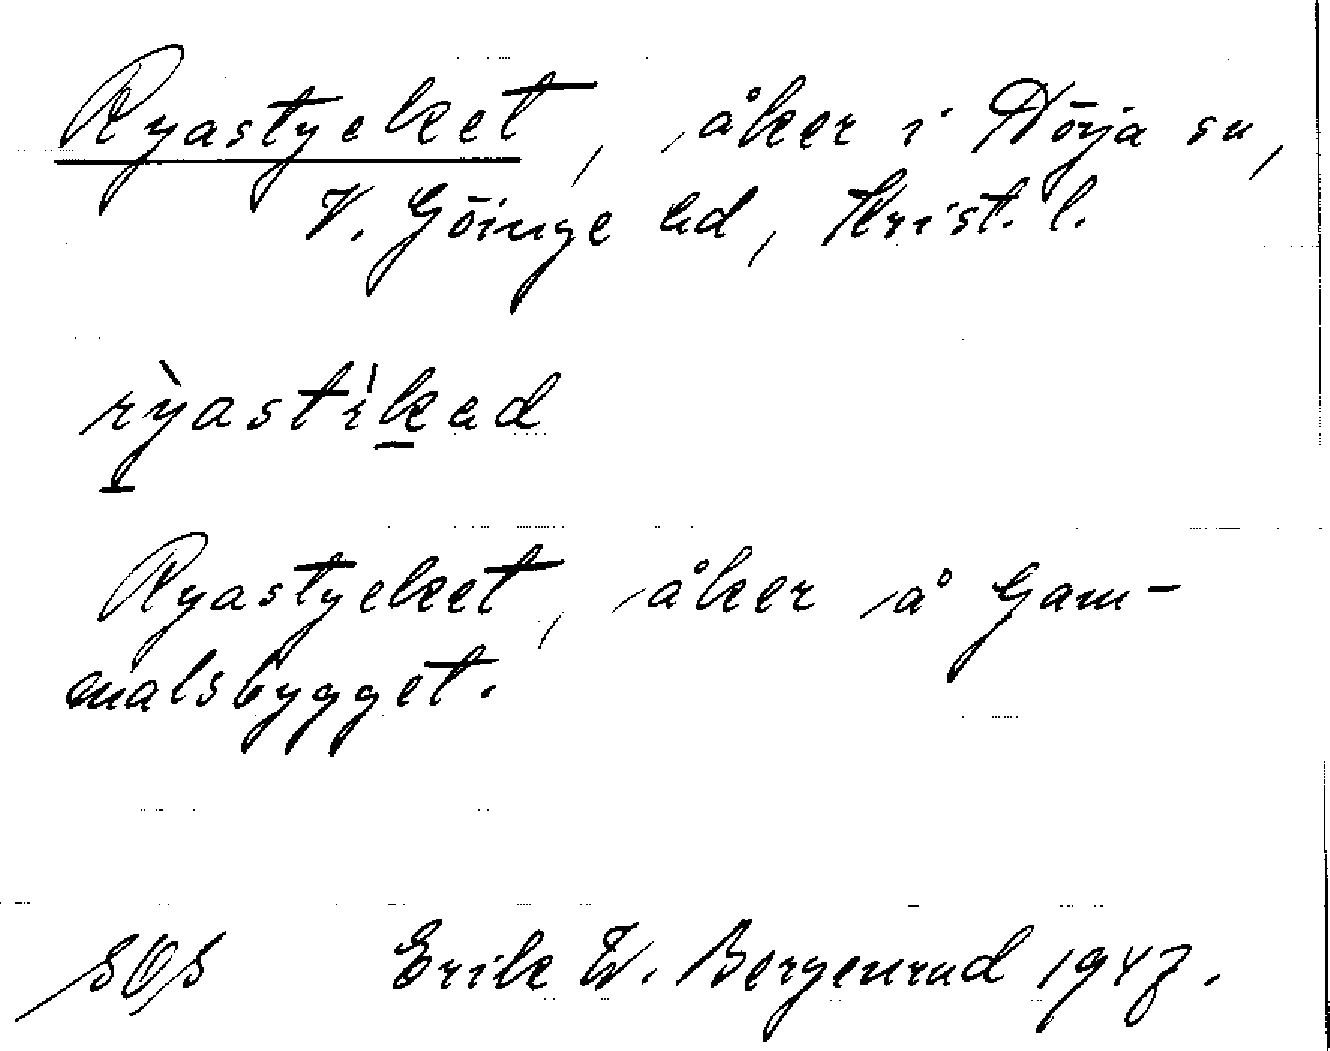 Ryastycket, åker i Nörja sn,
V. Göinge hd, Krist. l.
rỳastìkad
Ryastycket, åker å Gam-
malsbygget.
Erik W. Bergenrud 1947.